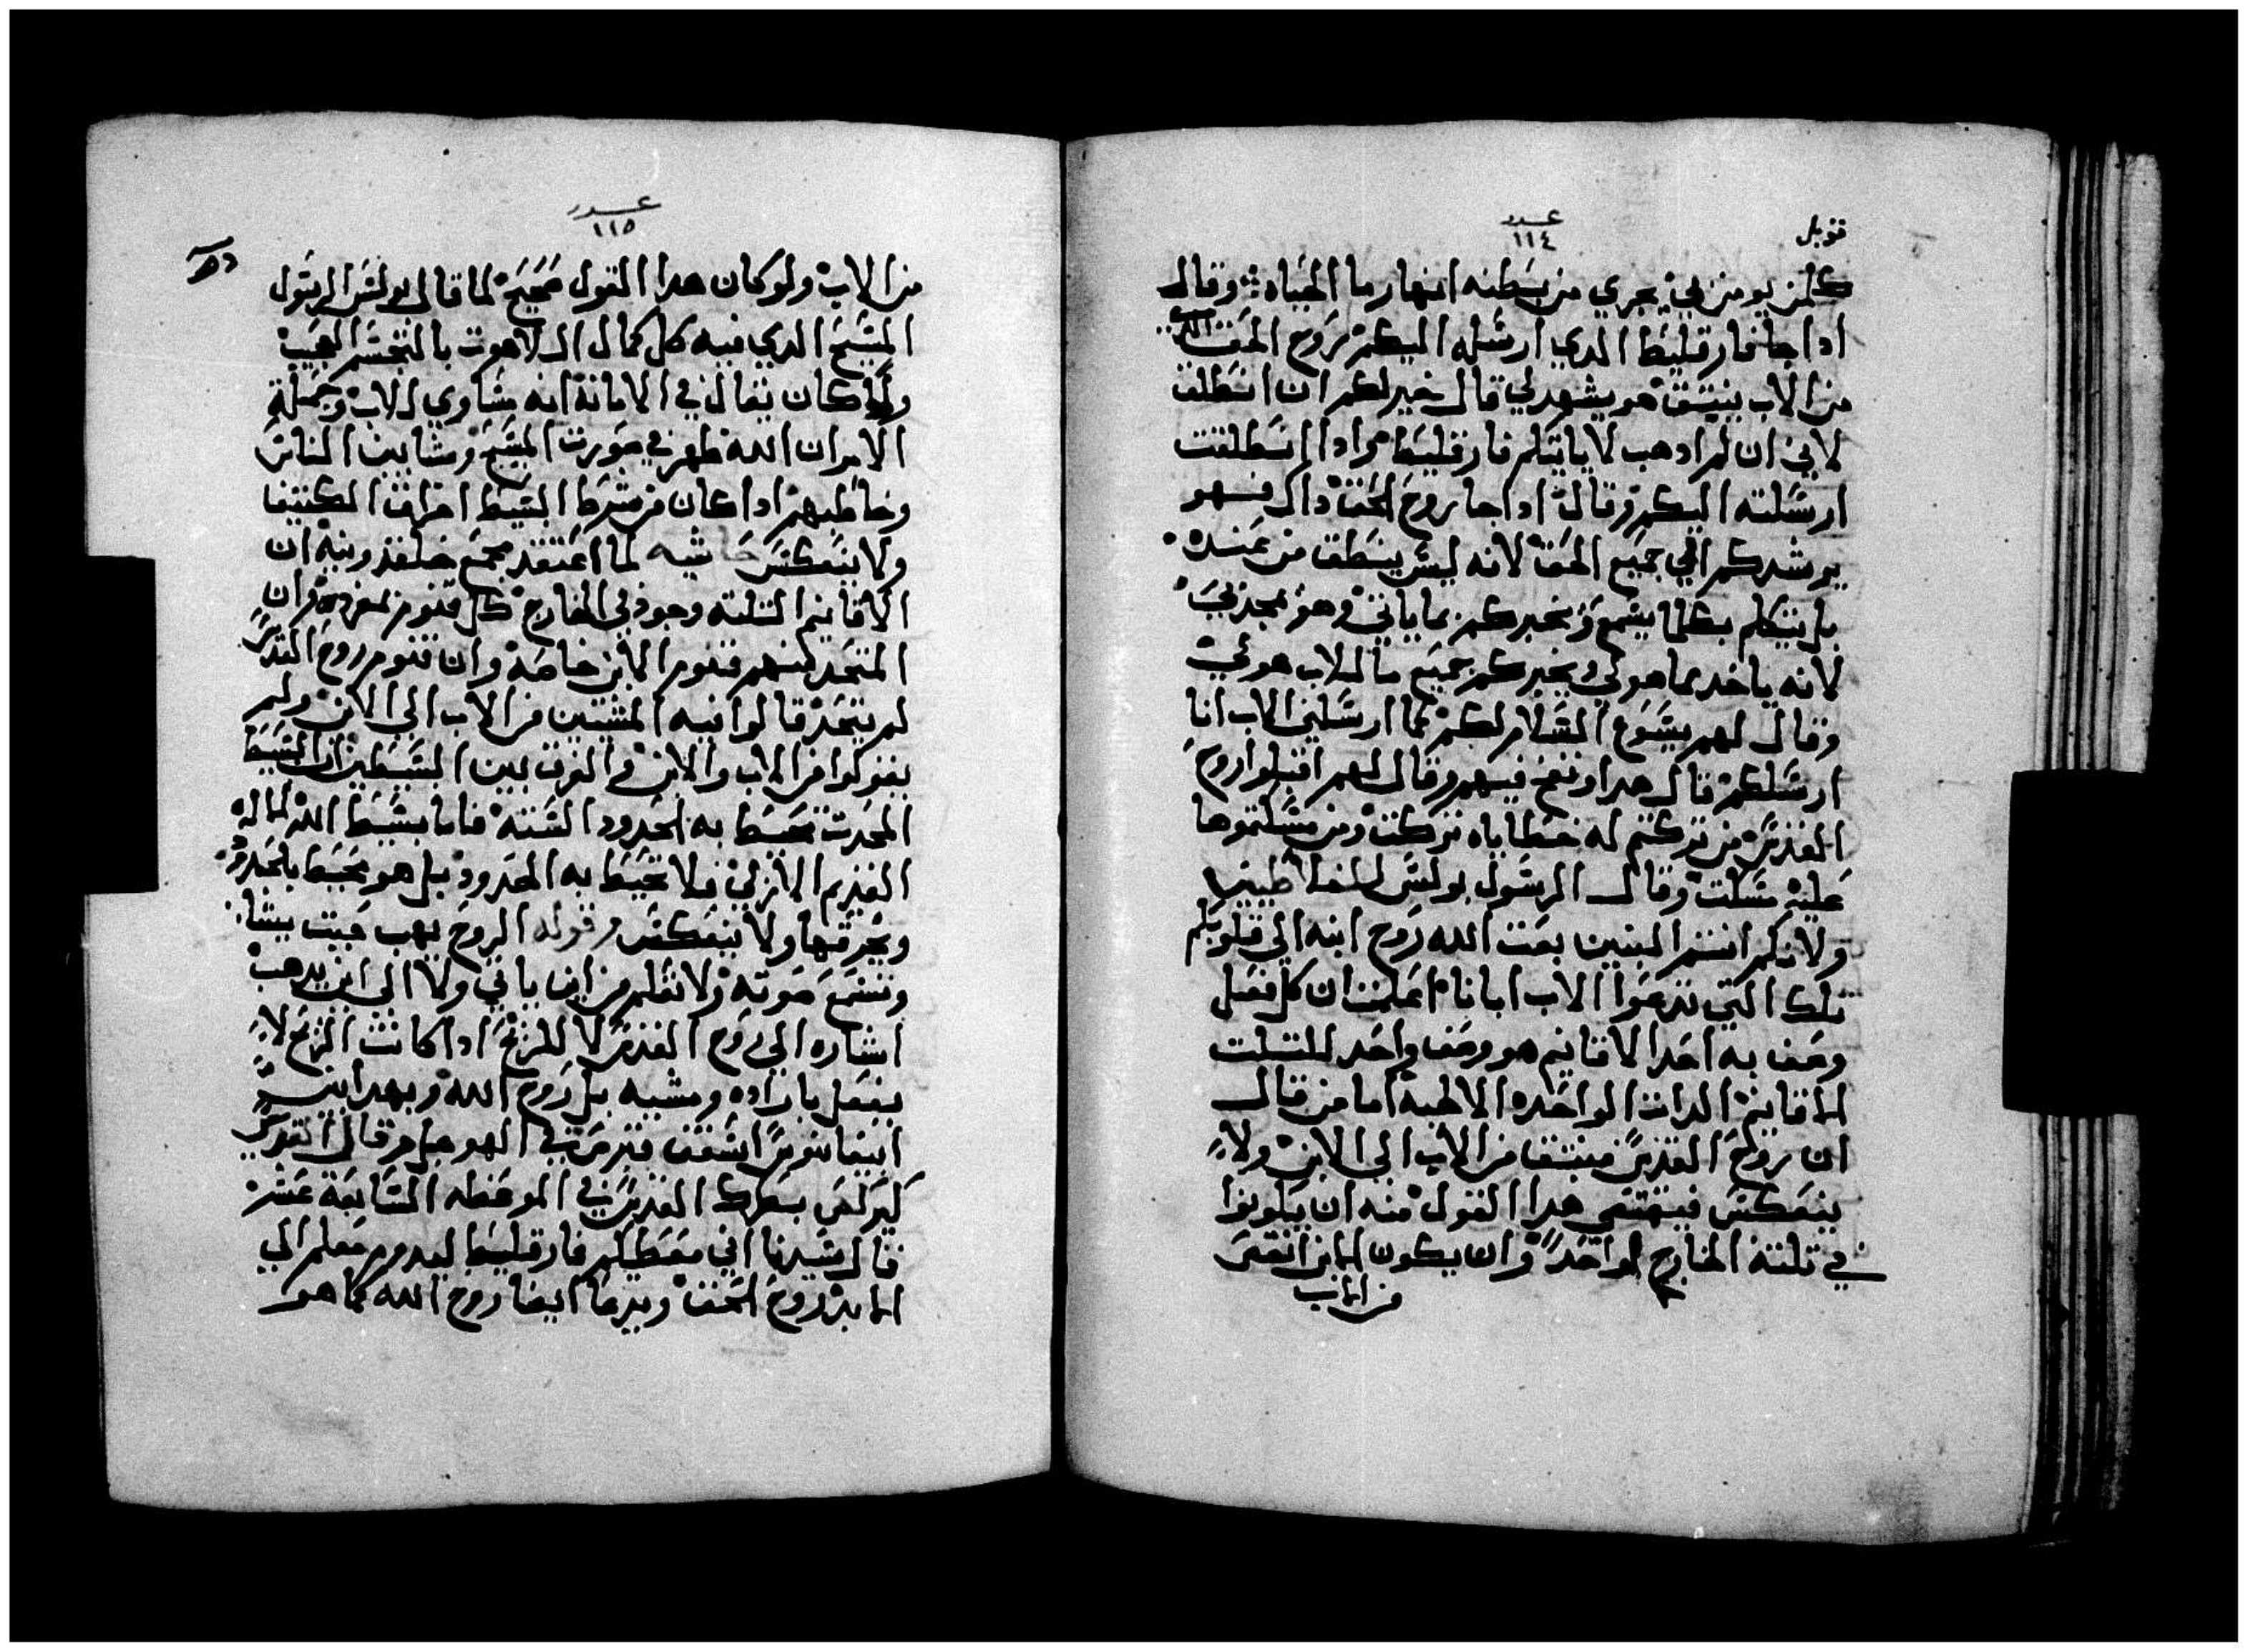 قوبل
عدد
١١٤
كلمن يومن بي يجري من بطنه انهار ما الحياه ⁘ وقال
اذا جا فارقليط الدي ارسله اليكم روح الحق الدي
من الاب ينبتق هو يشهد لي قال خير لكم ان انطلق
لاني ان لم ادهب لا ياتيكم فارقليط وادا انطلقت
ارسلته اليكم وقال ادا جا روح الحق داك فهو
يرشدكم الي جميع الحق لانه ليس ينطق من عنده
بل يتكلم بكلما يسمع ويخبركم بما ياتي وهو يمجدني
لانه ياخد مما هو لي ويخبركم جميع ما للاب هو لي
وقال لهم يسوع السلام لكم كما ارسلني الاب انا
ارسلكم قال هدا ونفخ فيهم وقال لهم اقبلوا روح
القدس من تركتم له خطاياه تركت ومن مسكتموها
عليه مسكت وقال الرسول بولس للغلاطيين
ولانكم انتم البنين بعت الله روح ابنه الي قلوبكم
تلك التي تدعوا الاب ابانا اعلمن ان كل فعل
وصف به احد الاقانيم هو وصف واحد للتلت
اقانيم الدات الواحده الالهية اما من قال
ان روح القدس منبتقا من الاب الي الابن ولا
ينعكس فيقتضي هدا القول منه ان يكونوا
في تلتة الخارج لواحد وان يكون الابن انقص
من الاب
عدد
١١٥
من الاب ولو كان هدا القول صحيح لما قال بولس الرسول
المسيح الدي فيه كل كمال اللاهوت بالتجسم
ولما كان يقال في الامانة انه مساوي للاب وجملة
الامر ان الله ظهر في صورت المسيح وشابيه الناس
وخاطبهم ادا كان من شرط البسيط اخراق الكتيفا
ولا ينعكس حاشيه لما اعتقد مجمع خلقدونيه ان
الاقانيم التلته وجود في الخارج كل قنوم بمفرده وان
المتحد منهم قنوم الابن خاصة وان قنوم روح القدس
لم يتحد قالوا فيه المنبتق من الاب الي الابن ولم
يقولوا من الاب والابن والفرق بين البسيطين ان البسيط
المحدت تحيط به الحدود السته فاما بسيط الله
القديم الازلي فلا تحيط به الحدود بل هو يحيط بالحدود
ويخرقها ولا ينعكس وقوله الروح يهب حيت يشا
وتسمع صوته ولا تعلم من اين ياتي ولا الي اين يدهب
اشاره الي روح القدس لا للريح ادا كانت الريح لا
يفعل بارادة ومشيه بل روح الله وبهدا
ابيفانيوس اسقف قبرص في الهو وقال القديس
كيرلص بطرك القدس في الموعظه السابعة عشر
قال سيدنا اني معطيكم فارقليط ليدوم معكم الي
الابد روح الحق ويدعا ايضا روح الله كما هو